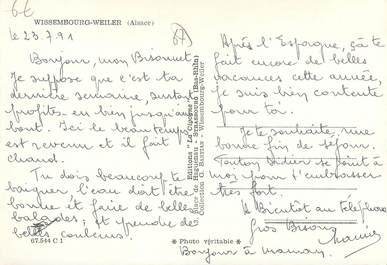 6€
WISSEMBOURG-WEILER (Alsace)
le 23.7.91
Bonjour, mon Bisounet
Je suppose que c'est ta
dernière semaine, surtout
profites-en bien jusqu'au
bout. Ici le beau temps
est revenu et il fait
chaud.
Tu dois beaucoup te
baigner l'eau doit être
bonne et faire de belles
balades, et prendre de
belles couleurs.
67.544 C 1
Editions "La Cigogne"
Place de Haguenau - STRASBOURG (Bas-Rhin)
Collection - Wissembourg-Weiler
* Photo véritable *
Après l'Espagne, çà te
fait encore de belles
vacances cette année,
je suis bien contente
pour toi.
Je te souhaite, une
bonne fin de séjour.
Tonton Didier se joint à
moi pour t'embrasser
très fort.
A Bientôt au téléphone
Gros Bisous
Bonjour à maman